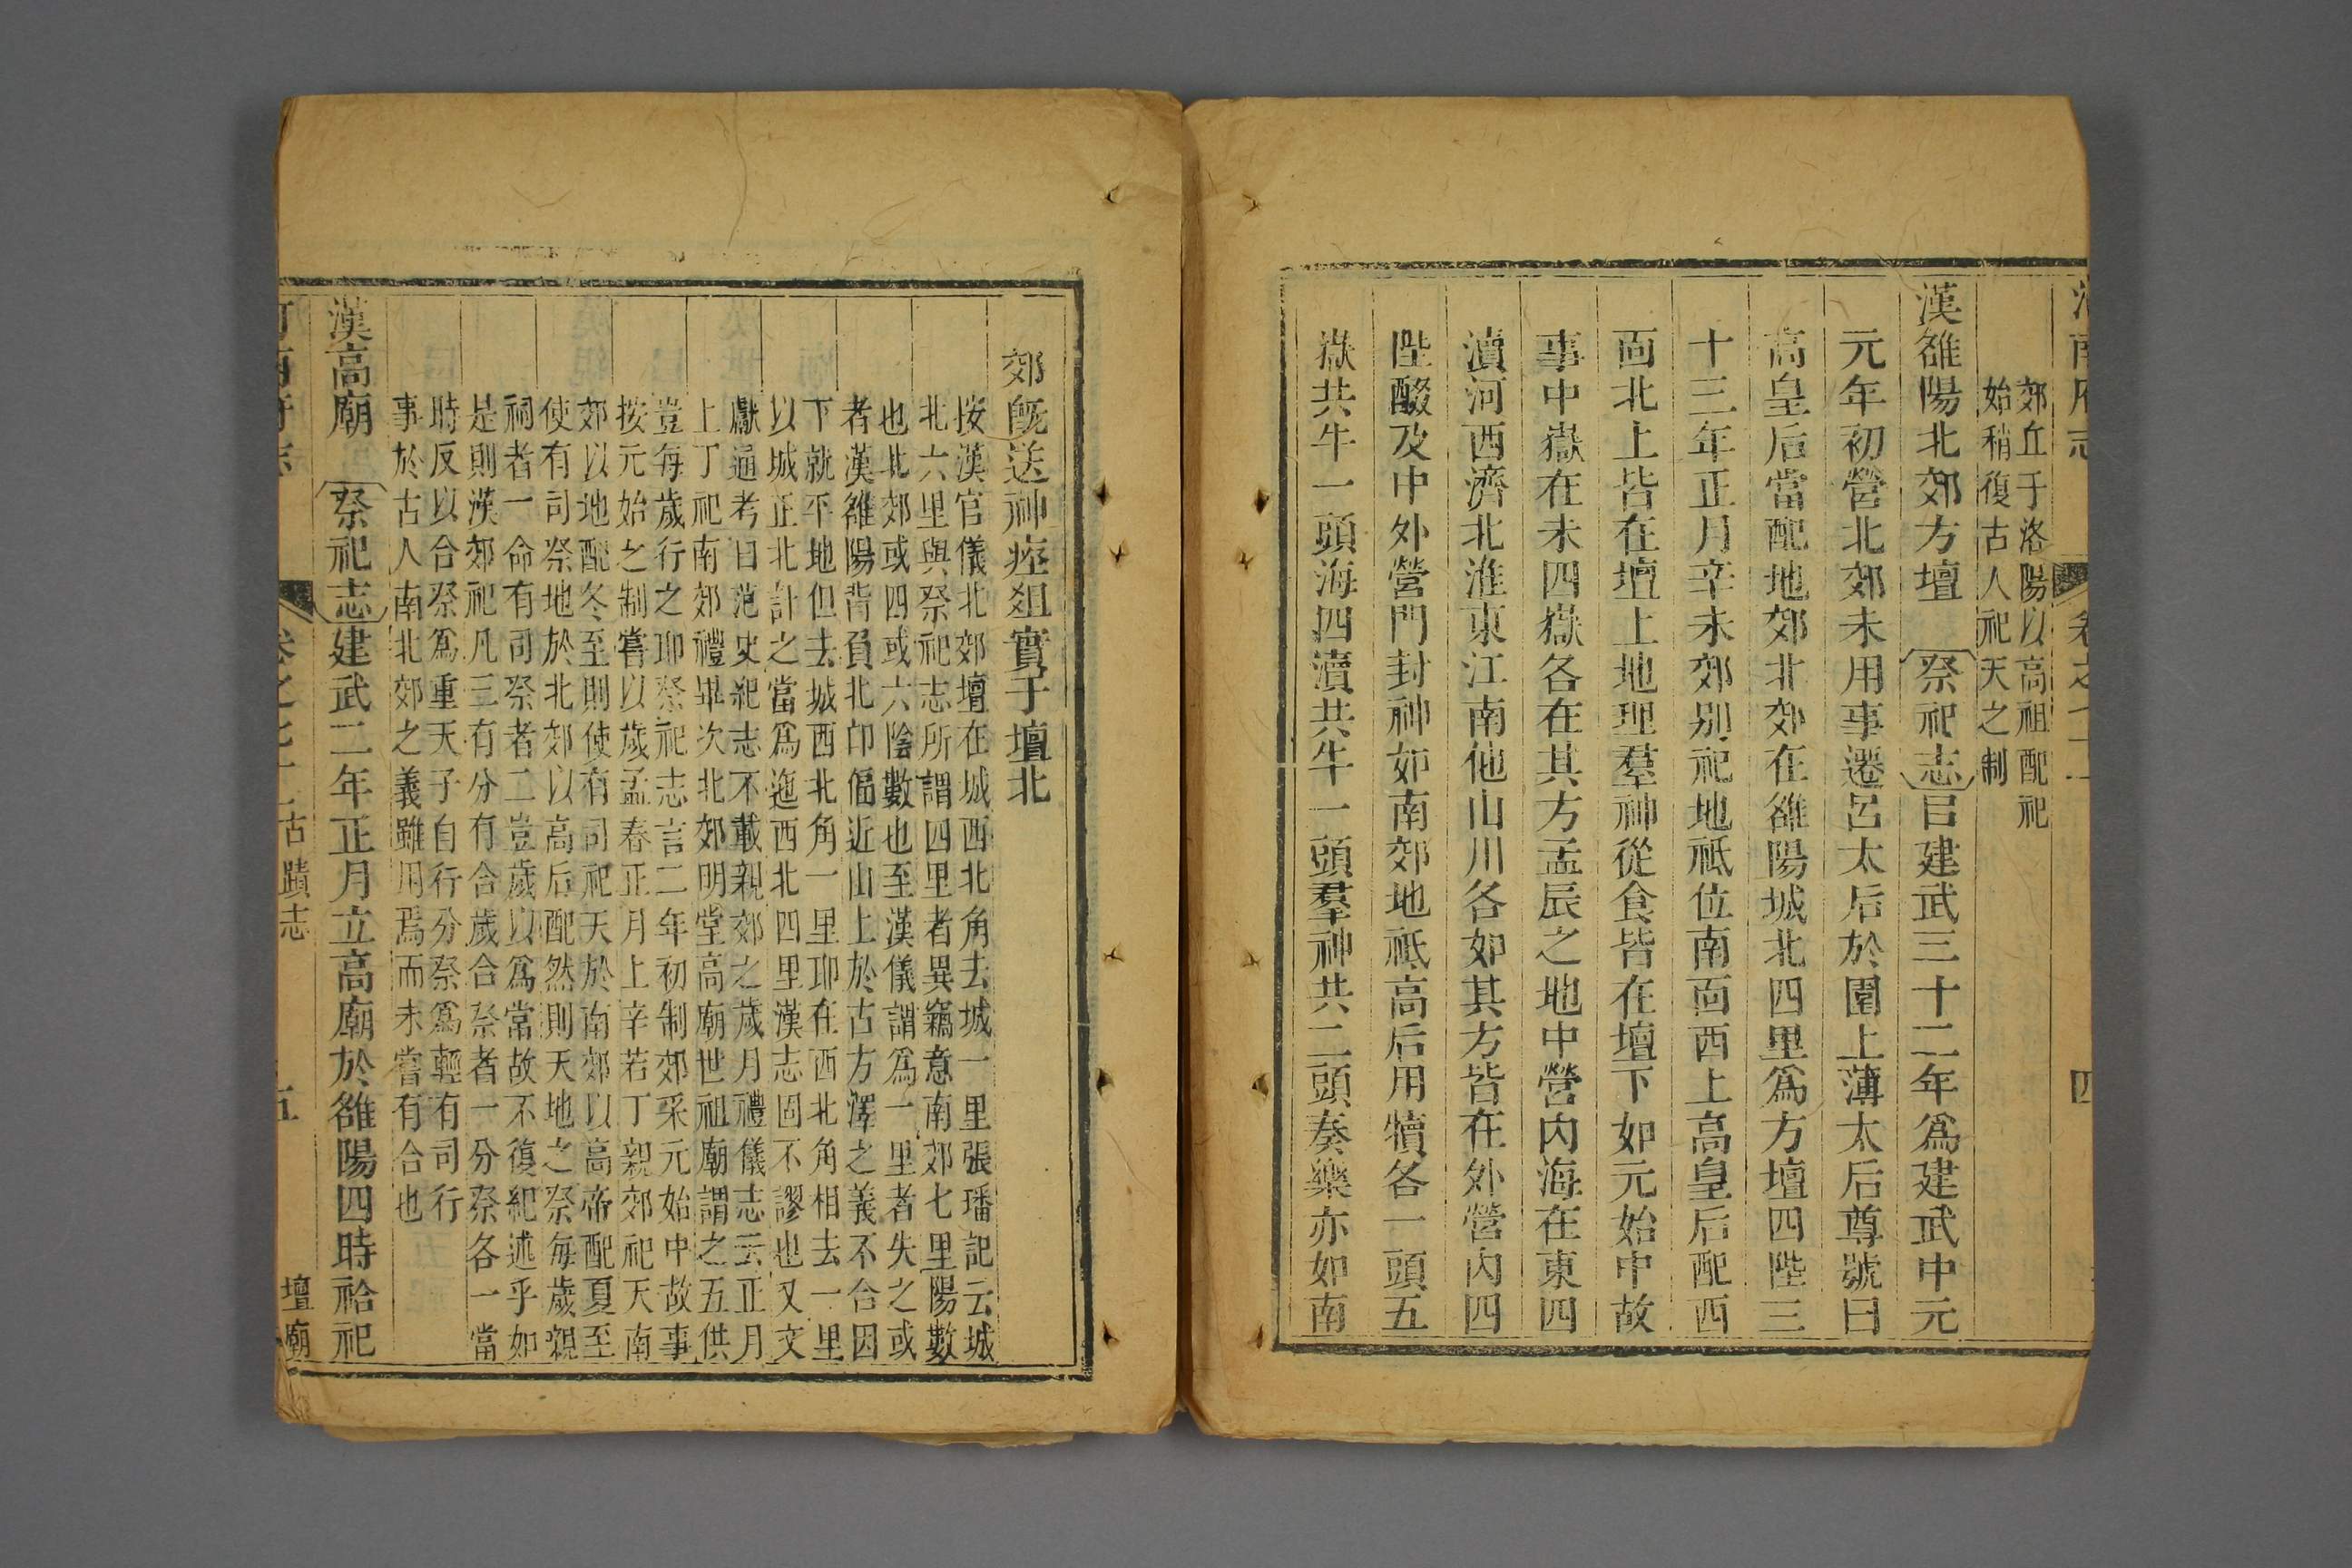 郊丘于洛陽以高祖配祀
始稍復古人祀天之制
漢雒陽北郊方壇 祭祀志曰建武三十二年爲建武中元
元年初營北郊未用事遷呂太后於園上薄太后尊號曰
高皇后當配地郊北郊在雒陽城北四里爲方壇四陛三
十三年正月辛未郊別祀地祗位南面西上高皇后配西
面北上皆在壇上地理羣神從食皆在壇下如元始中故
事中嶽在未四嶽各在其方孟辰之地中營內海在東四
瀆河西濟北淮東江南他山川各如其方皆在外營內四
陛醊及中外營門封神如南郊地祗高后用犢各一頭五
嶽共牛一頭海四瀆共牛一頭羣神共二頭奏樂亦如南
郊旣送神瘞俎實于壇北
按漢官儀北郊壇在城西北角去城一里張璠記云城
北六里與祭祀志所謂四里者異竊意南郊七里陽數
也北郊或四或六陰數也至漢儀謂爲一里者失之或
者漢雒陽背負北邙偪近山上於古方澤之義不合因
下就平地但去城西北角一里耶在西北角相去一里
以城正北計之當爲迤西北四里漢志固不謬也又文
獻通考曰范史紀志不載親郊之歲月禮儀志云正月
上丁祀南郊禮畢次北郊明堂高廟世祖廟謂之五供
豈每歲行之耶祭祀志言二年初制郊采元始中故事
按元始之制嘗以歲孟春正月上辛若丁親郊祀天南
郊以地配冬至則使有司祀天於南郊以高帝配夏至
使有司祭地於北郊以高后配然則天地之祭每歲親
祠者一命有司祭者二豈歲以爲常故不復紀述乎如
是則漢郊祀凡三有分有合歲合祭者一分祭各一當
時反以合祭爲重天子自行分祭爲輕有司行
事於古人南北郊之義雖用焉而未嘗有合也
漢高廟 祭祀志建武二年正月立高廟於雒陽四時祫祀
古蹟志 五 壇廟